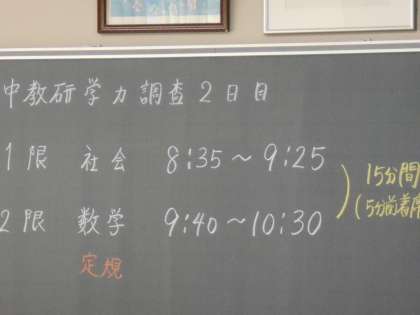 中教研学力調査2日目
1限 社会 8:35～9:25
15分間
(5分前着席
2限 数学 9:40～10:30
定規